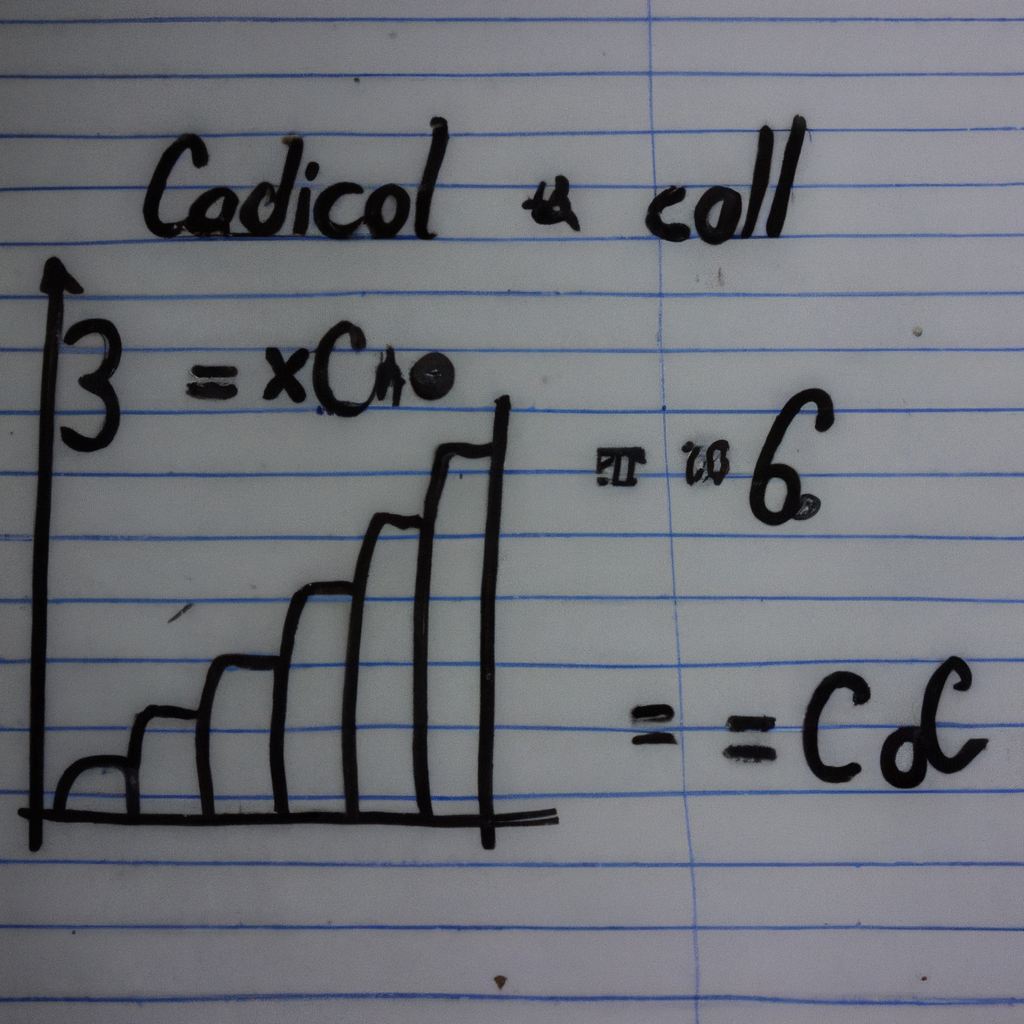 Cadicol & coll
3 = xC
= 6
= = CoC